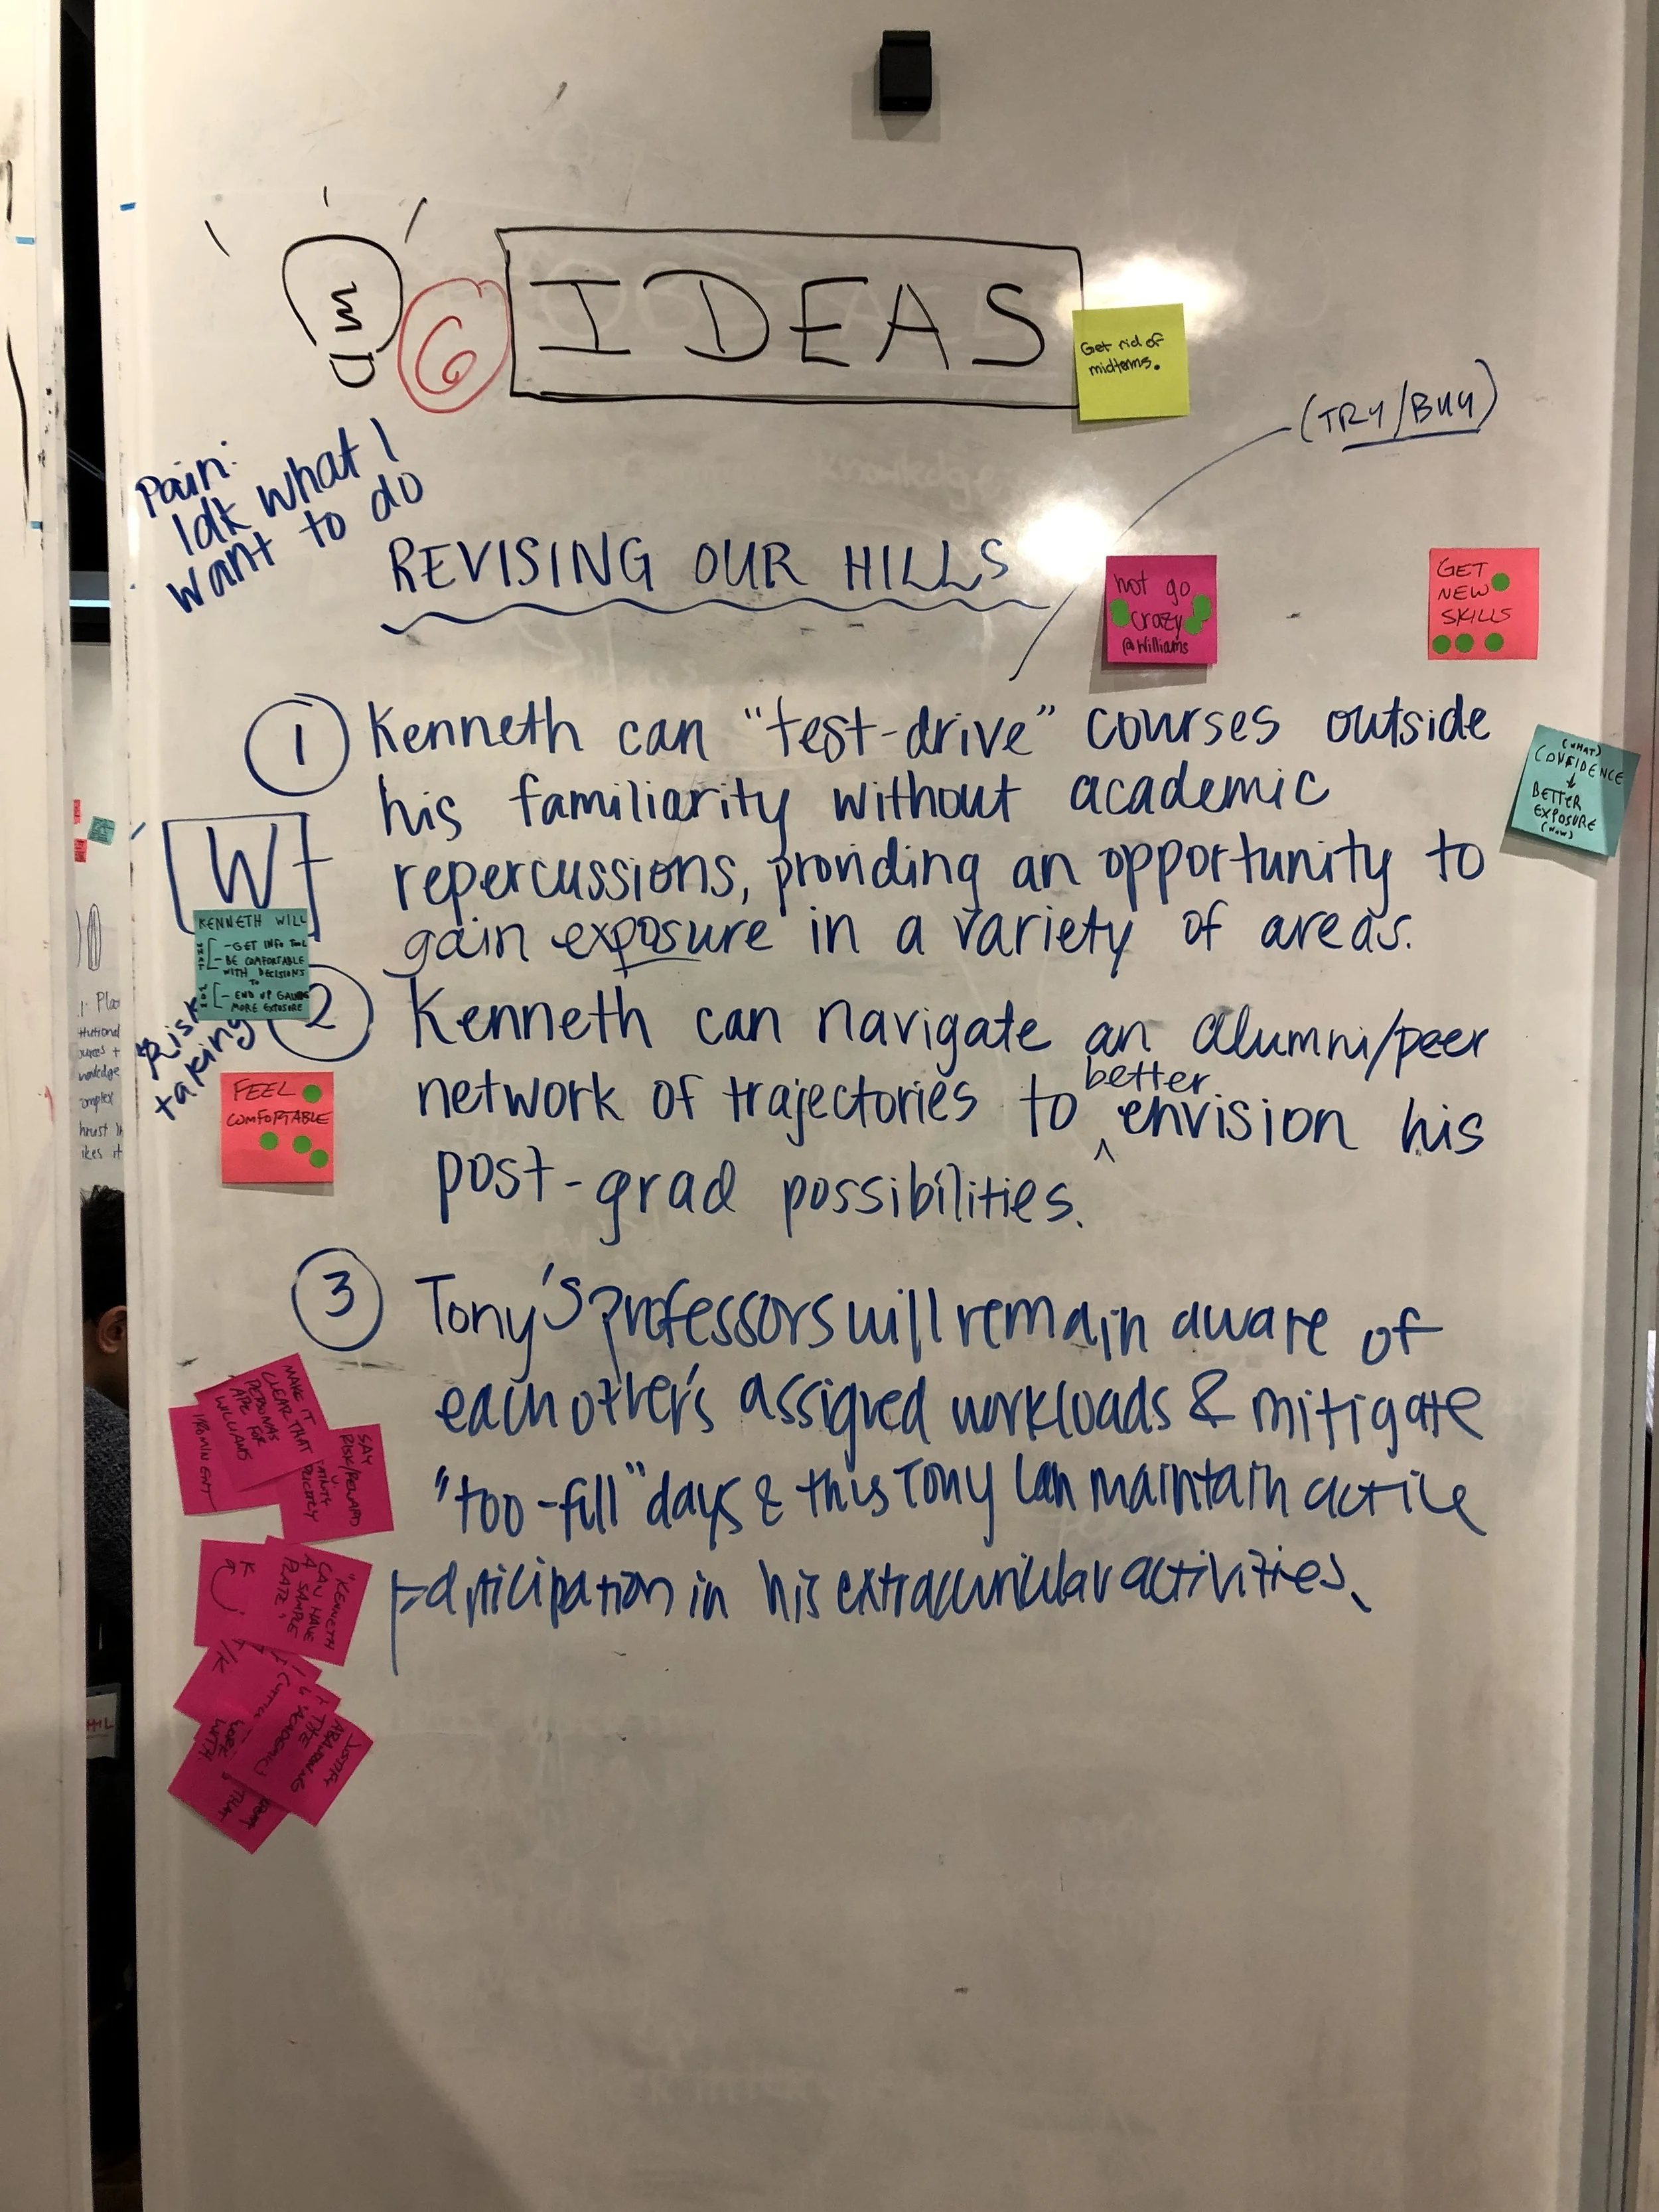 6
IDEAS
Get rid of
midterms.
(TRY/BUY)
Pain:
Idk what I
want to do
REVISING OUR HILLS
not go
crazy
@Williams
GET
NEW
SKILLS
1 Kenneth can "test-drive" courses outside
his familiarity without academic
repercussions, providing an opportunity to
gain exposure in a variety of areas.
(WHAT)
CONFIDENCE
↓
BETTER
EXPOSURE
(WOW)
W
KENNETH WILL
WHAT
- GET INFO
- BE COMFORTABLE
WITH DECISIONS
TO
WOW
- END UP
MORE EXPOSURE
Risk
taking
2 Kenneth can navigate an alumni/peer
network of trajectories to better envision his
post-grad possibilities.
FEEL
COMFORTABLE
3 Tony's professors will remain aware of
each other's assigned workloads & mitigate
"too-fill" days & this Tony can maintain active
participation in his extracurricular activities.
MAKE IT
CLEAR THAT
PERSONAS
ARE FOR
WILLIAMS
PROMINENT
SAY
RISK/REWARD
"KENNETH
CAN HAVE
A SAMPLE
PLATE"
K
/K
JUSTIFY
ABANDONING
THE
ACADEMIC
WORK
WITH
THAT